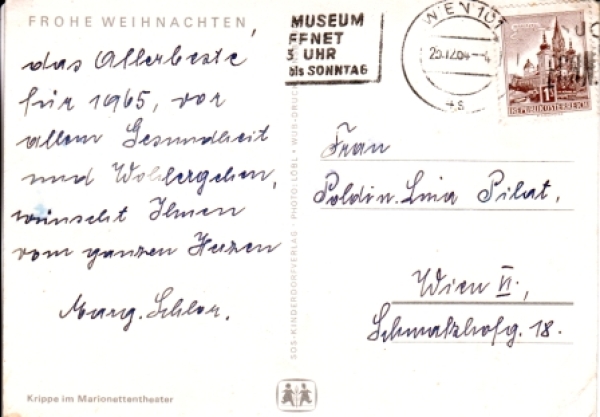 FROHE WEIHNACHTEN,
das Allerbeste
für 1965, vor
allem Gesundheit
und Wohlergehen,
wünscht Ihnen
vom ganzen Herzen
Marg. Schlor.
Krippe im Marionettentheater
SOS-KINDERDORFVERLAG · PHOTO-LÖBL · WUB-DRUCK
MUSEUM
FFNET
3 UHR
bis SONNTAG
WIEN 101
REPUBLIK ÖSTERREICH
Frau
Poldin. Lina Pilat,
Wien VI.,
Schmalzhofg. 18.